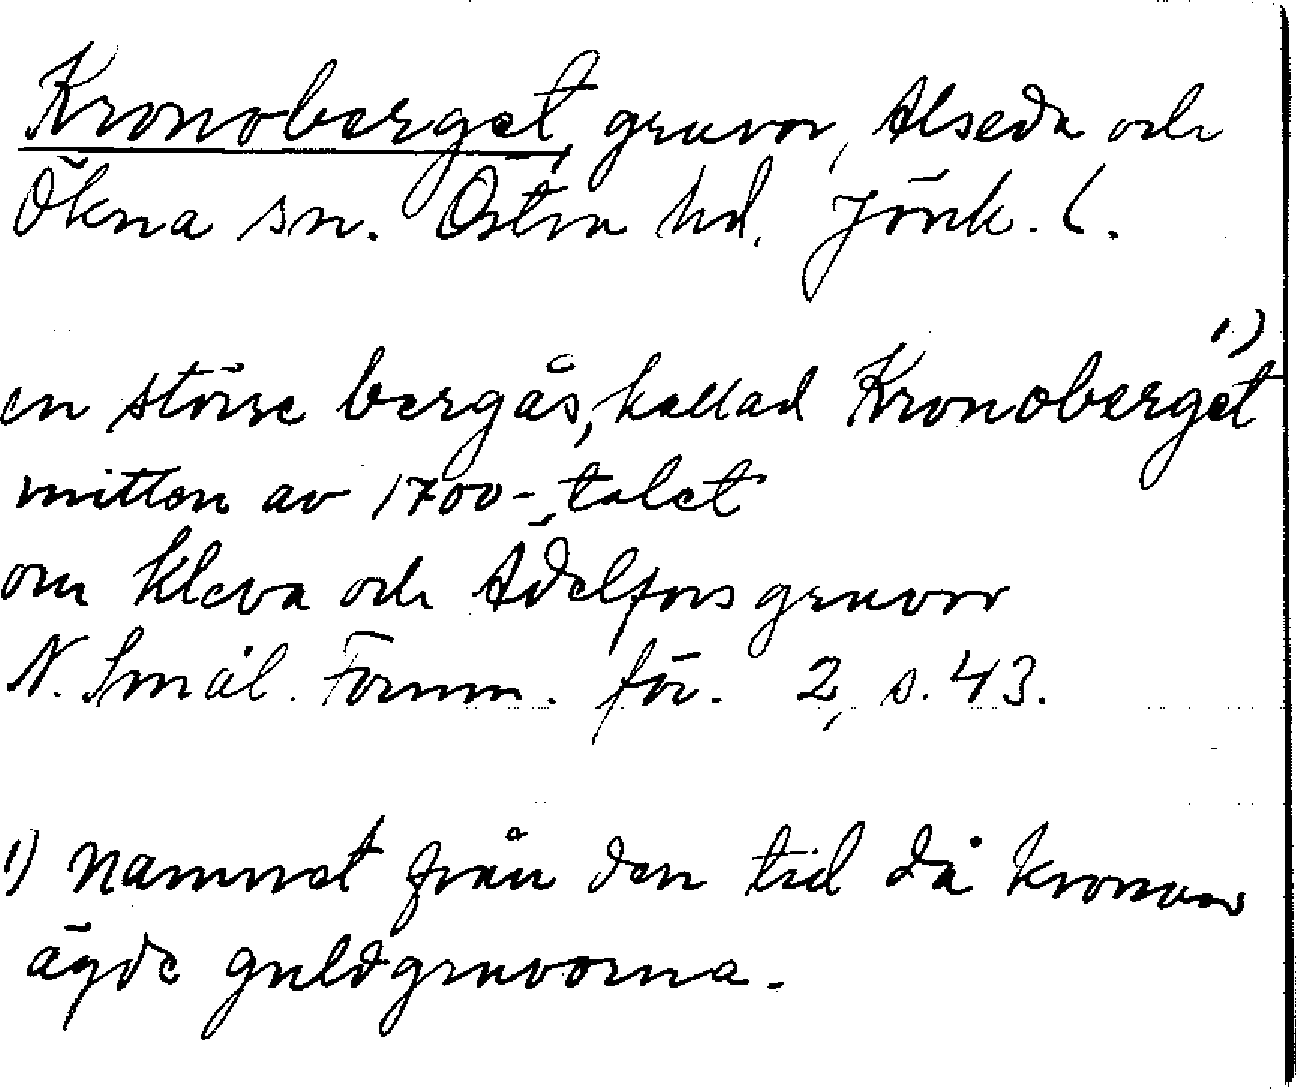 Kronoberget, gruvor, Alseda och
Ökna sn. Östra hd. Jönk. l.
1)
en större bergås, kallad Kronoberget
mitten av 1700-talet
om Kleva och Ädelfors gruvor
N. Smål. Fornm. för. 2, s. 43.
1) Namnet från den tid då kronan
ägde guldgruvorna.